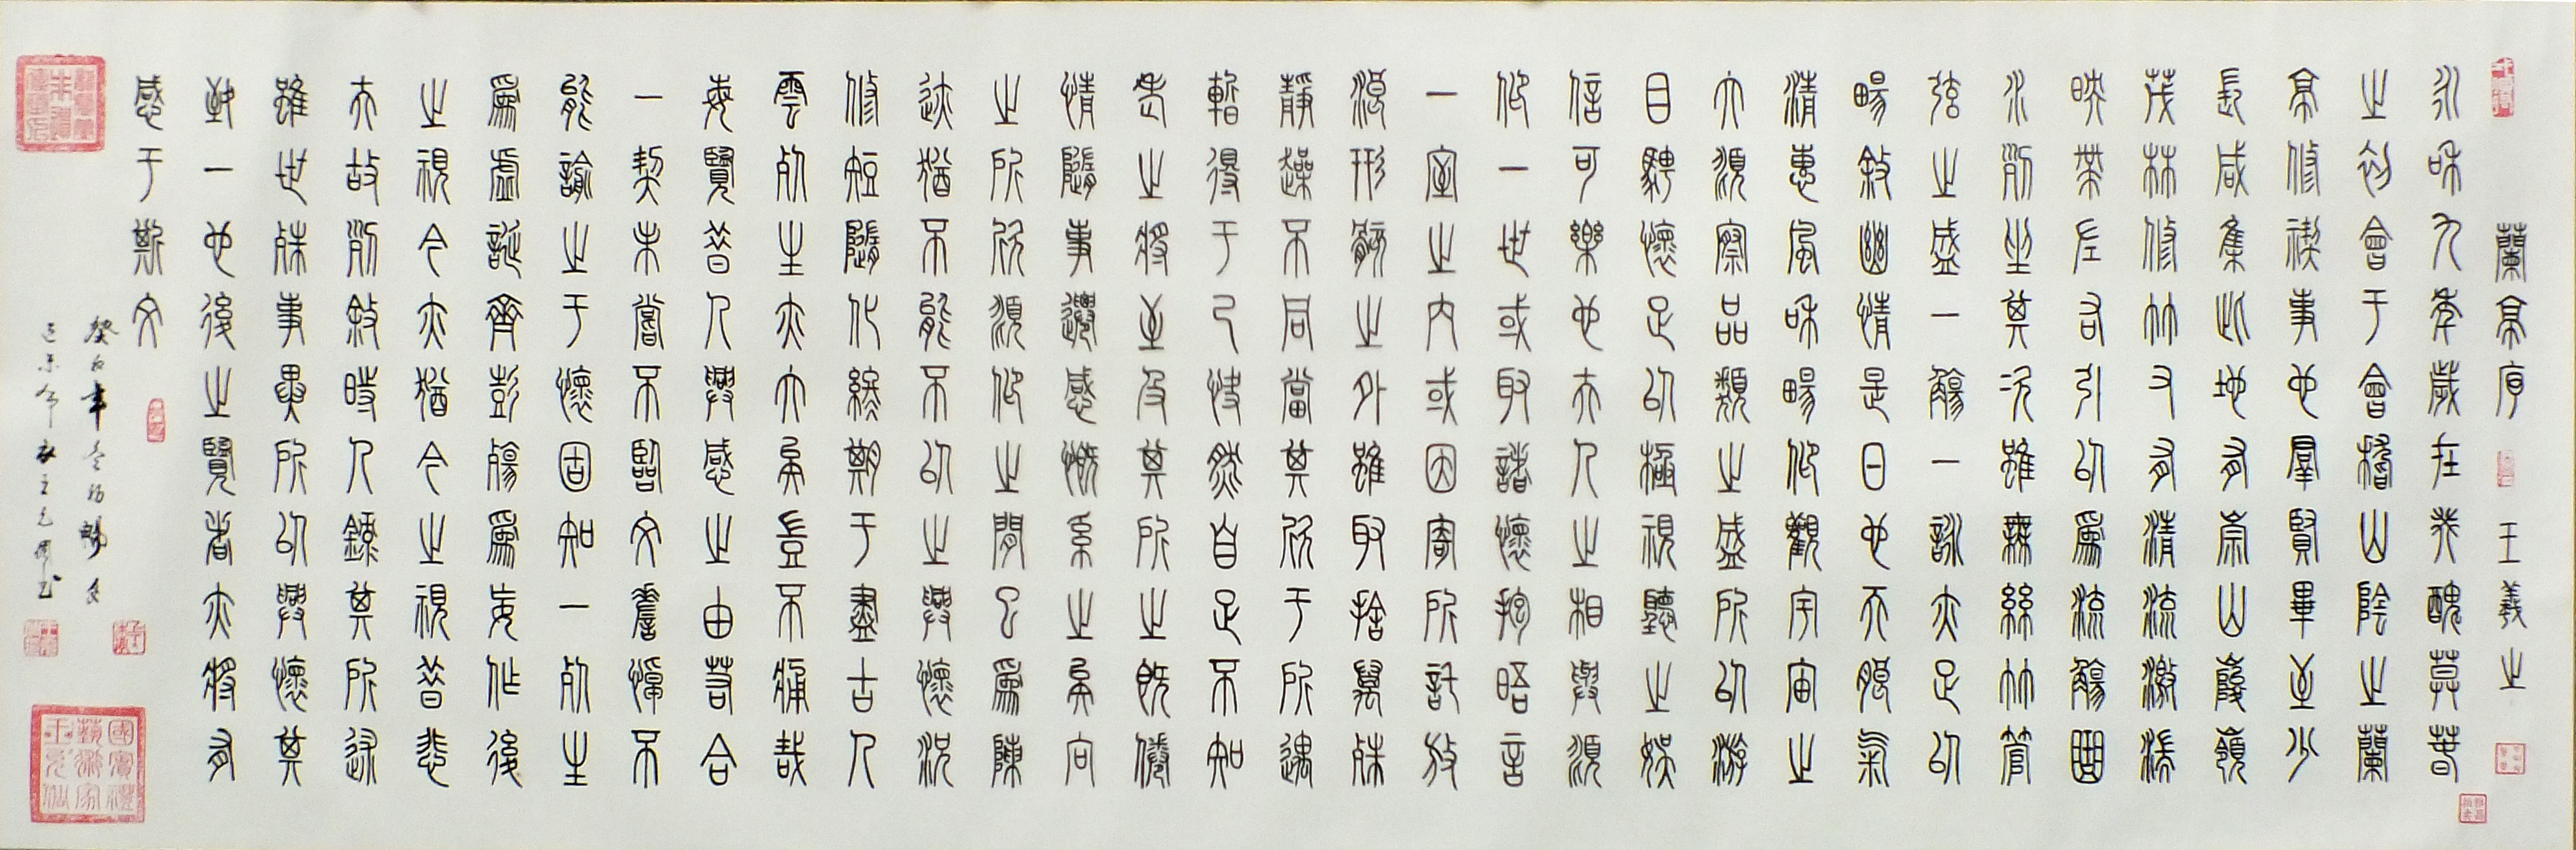 蘭亭序 王羲之
永和九年歲在癸醜莫春
之初會于會稽山陰之蘭
亭修禊事也群賢畢至少
長咸集此地有崇山峻嶺
茂林修竹又有清流激湍
映帶左右引以為流觴曲
水列坐其次雖無絲竹管
弦之盛一觴一詠亦足以
暢敘幽情是日也天朗氣
清惠風和暢仰觀宇宙之
大俯察品類之盛所以游
目騁懷足以極視聽之娛
信可樂也夫人之相與俯
仰一世或取諸懷抱晤言
一室之內或因寄所託放
浪形骸之外雖取捨萬殊
靜躁不同當其欣于所遇
暫得于己快然自足不知
老之將至及其所之既倦
情隨事遷感慨系之矣向
之所欣俯仰之間已為陳
迹猶不能不以之興懷況
修短隨化終期于盡古人
雲死生亦大矣豈不痛哉
每覽昔人興感之由若合
一契未嘗不臨文嗟悼不
能諭之于懷固知一死生
為虛誕齊彭殤為妄作後
之視今亦猶今之視昔悲
夫故列敘時人錄其所述
雖世殊事異所以興懷其
致一也後之覽者亦將有
感于斯文
癸卯年